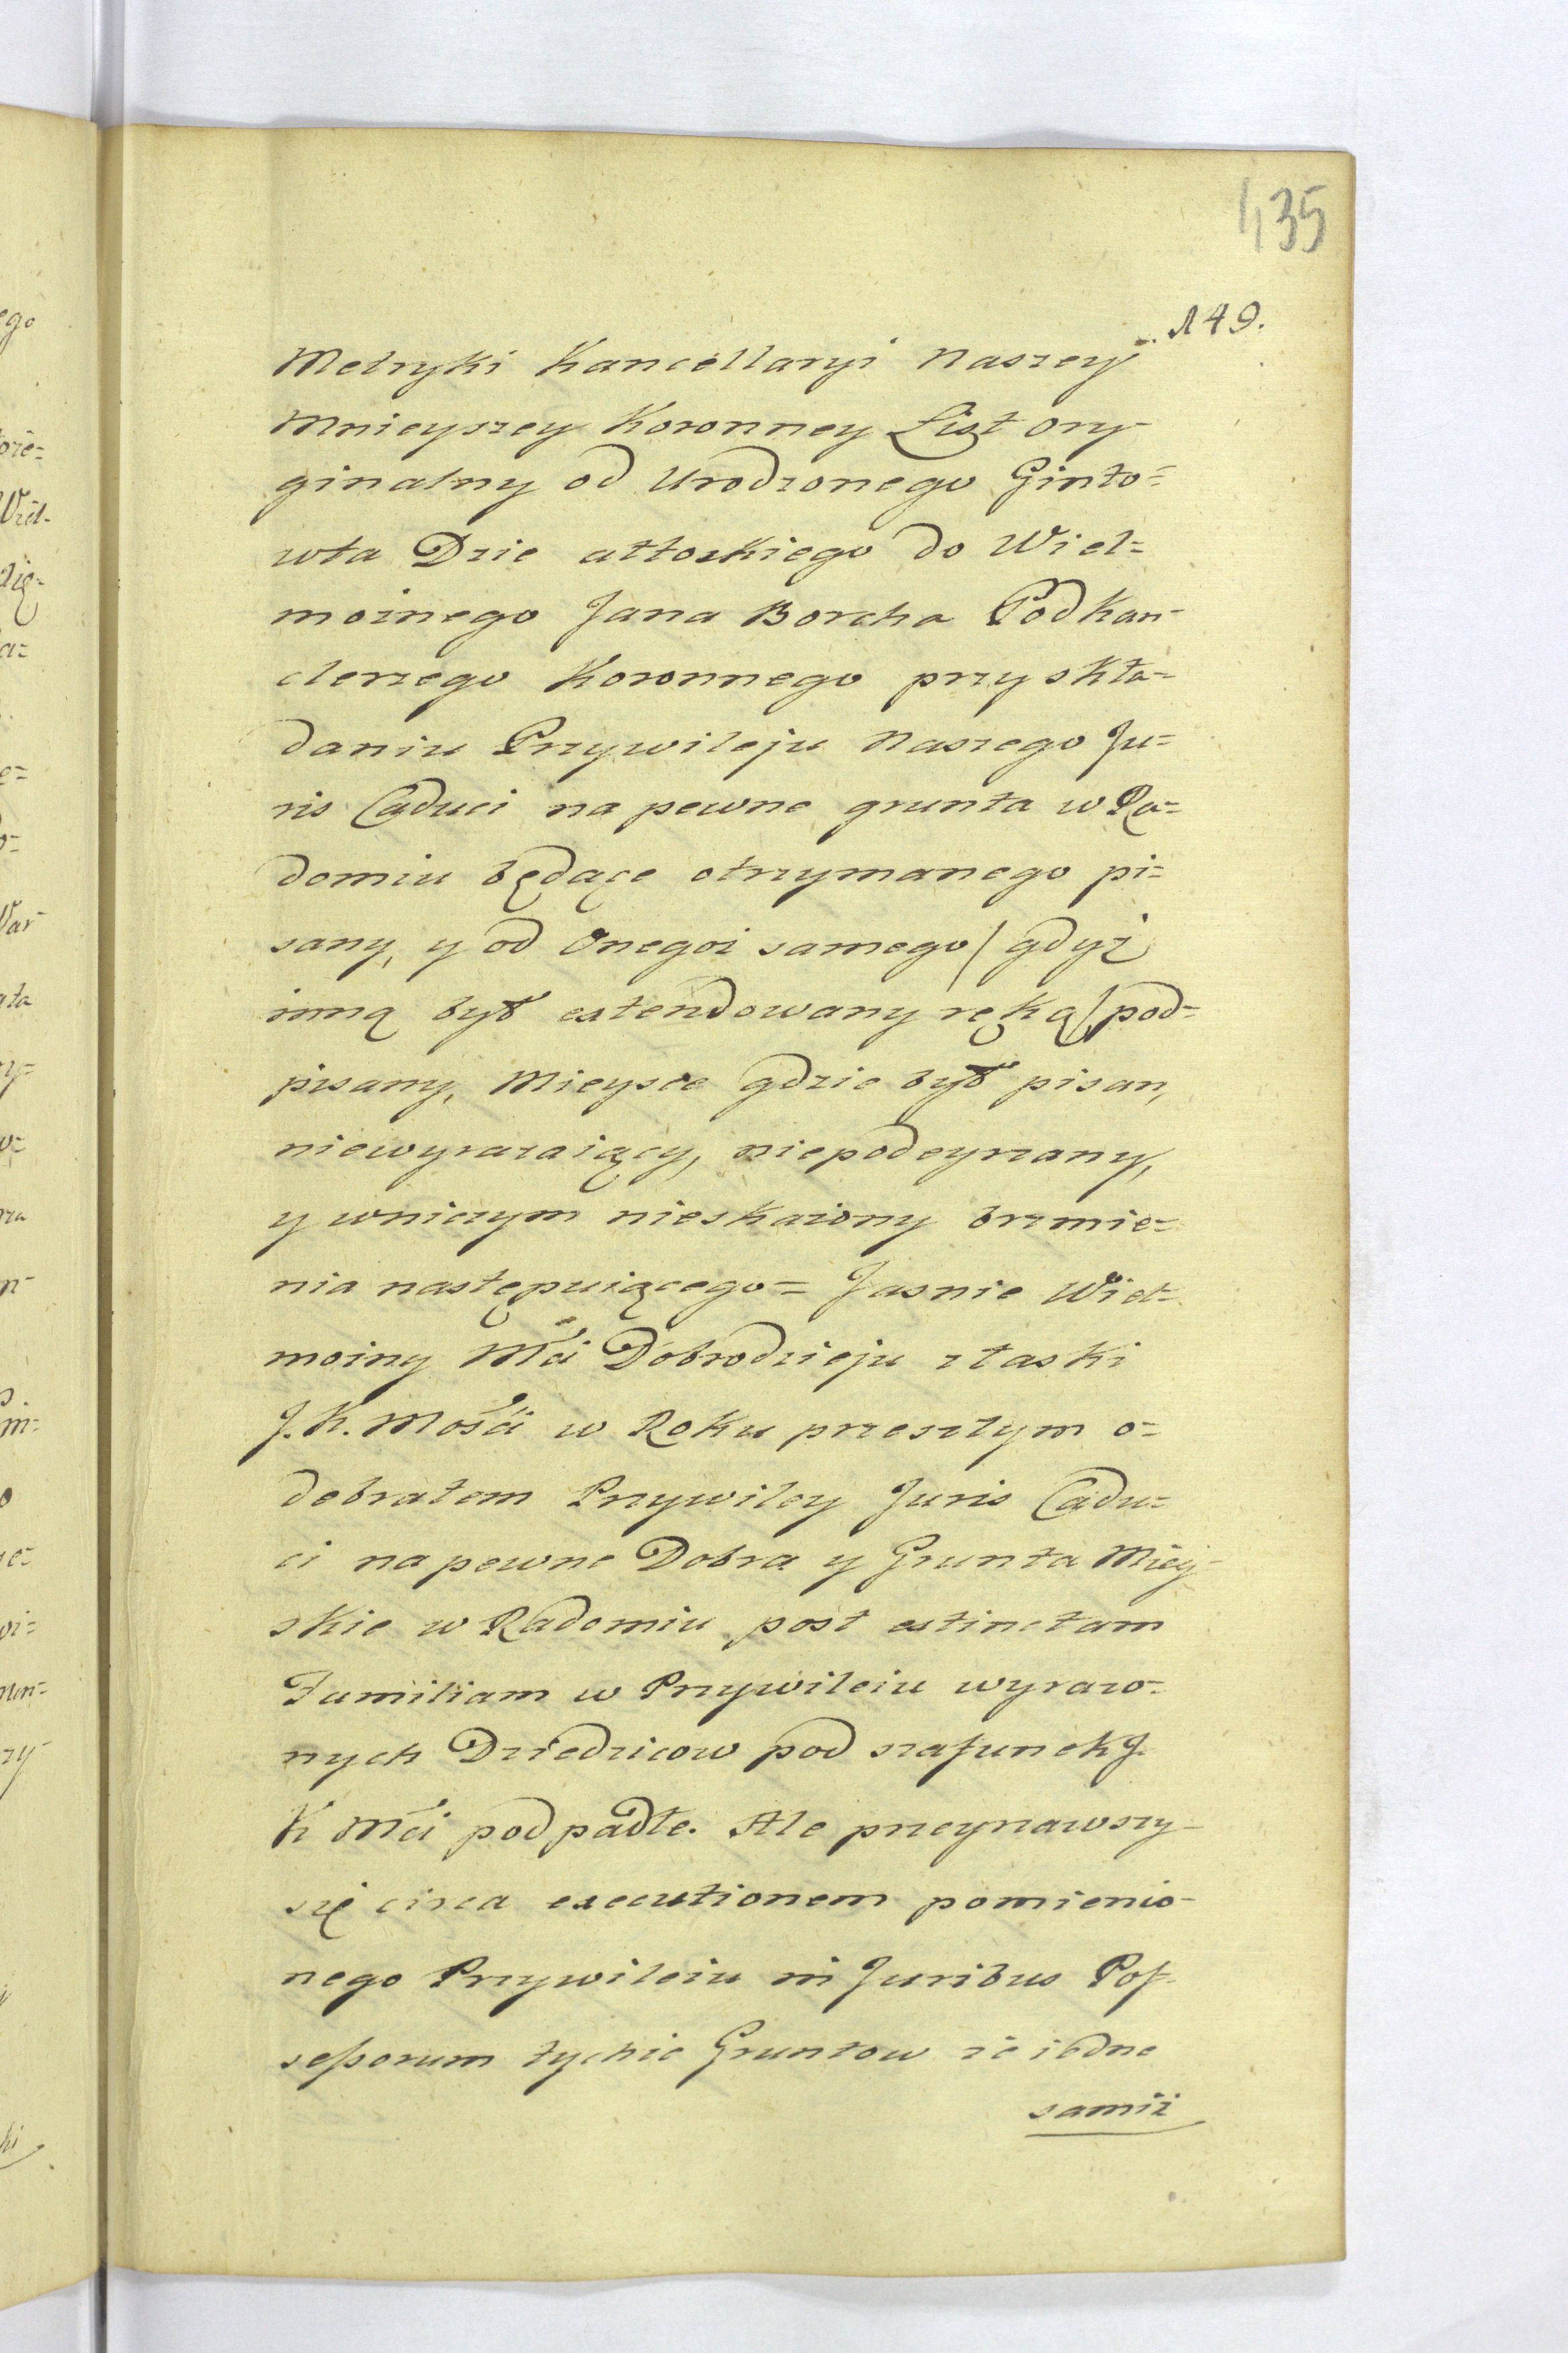 435
149.
Metryki Kancellaryi Naszey
Mnieyszey Koronney List ory-
ginalny od Urodzonego Ginto=
wta Dzie ałtoskiego do Wiel=
możnego Jana Borcha Podkan-
clerzego Koronnego przy skła=
daniu Przywileju Naszego Ju=
ris Caduci na pewne grunta w Ra=
domiu będące otrzymanego pi=
sany, y od Onegoż samego / gdyż
inną był extendowany ręką / pod=
pisany, Mieysce gdzie był pisan,
niewyrażaiący, niepodeyrzany,
y wniczym nieskażony brzmie=
nia następuiącego = Jasnie Wiel=
możny Mći Dobrodzieju z łaski
J. K. Mośći w Roku przeszłym o=
debrałem Przywiley Juris Cadu=
ci na pewne Dobra y Grunta Miey-
skie w Radomiu post extinctam
Familiam w Przywileiu wyrażo=
nych Dziedzicow pod szafunek J.
K Mći podpadłe. Ale przeyrzawszy-
się circa executionem pomienio-
nego Przywileiu in Juribus Pos-
sessorum tychże Gruntow że iedne
samiż